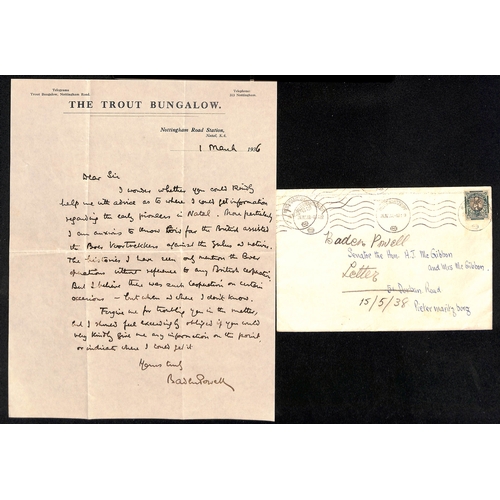 Telegrams:
Trout Bungalow, Nottingham Road.
Telephone:
Nottingham.
THE TROUT BUNGALOW.
Nottingham Road Station,
Natal, S.A.
1 March 1936
Dear Sir
I wonder whether you could kindly
help me with advice as to where I could get information
regarding the early pioneers in Natal. More particularly
I am anxious to know how far the British assisted
the Boer Voortrekkers against the Zulus & natives.
The histories I have seen only mention the Boer
operations without reference to any British cooperation.
But I believe there was such cooperation on certain
occasions - but when & where I don't know.
Forgive me for troubling you in the matter,
but I should feel exceedingly obliged if you could
very kindly give me any information on the point
or indicate where I could get it
Yours truly
Baden Powell
Baden Powell
Senator the Hon. H.J. McGibbon
and Mrs McGibbon.
Letter
Road
15/5/38
Pietermaritzburg